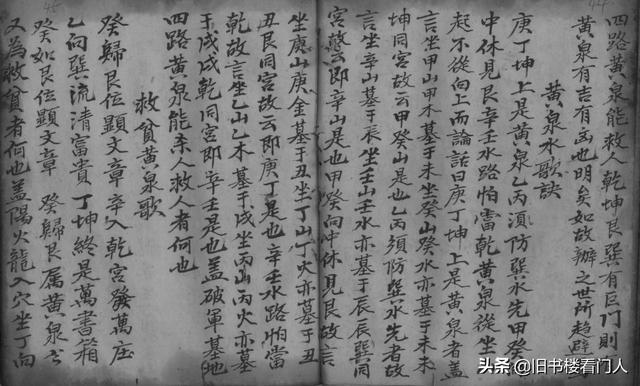 四路黄泉能救人乾坤艮巽有巨门則
黄泉有吉有凶也明矣如故辦之世所趋避
黄泉水歌訣
庚丁坤上是黄泉乙丙湏防巽水先甲癸
中休見艮辛壬水路怕當乾黄泉從坐
起不從向上而論話曰庚丁坤上是黄泉者盖
言坐甲山甲木墓于未坐癸山癸水亦墓于未未
坤同宮故云甲癸山是也乙丙須防巽水先者故
言坐辛山墓于辰坐壬山壬水亦墓于辰辰巽同
宮云即辛山是也甲癸向中休見艮故言
坐庚山庚金墓于丑坐丁山丁火亦墓于丑
丑艮同宮故云即庚丁是也辛壬水路怕當
乾故言坐乙山乙木墓于戌坐丙山丙火亦墓
于戌戌乾同宮即辛壬是也盖破軍墓地
四路黄泉能杀人救人者何也
救貧黄泉歌
癸歸艮位顯文章辛入乾宮發萬庄
乙向巽流清富貴丁坤終是萬書箱
癸如艮位顯文章 癸歸艮属黄泉
又為救貧者何也盖陽火龍入穴坐丁向
头条 @旧书楼看门人